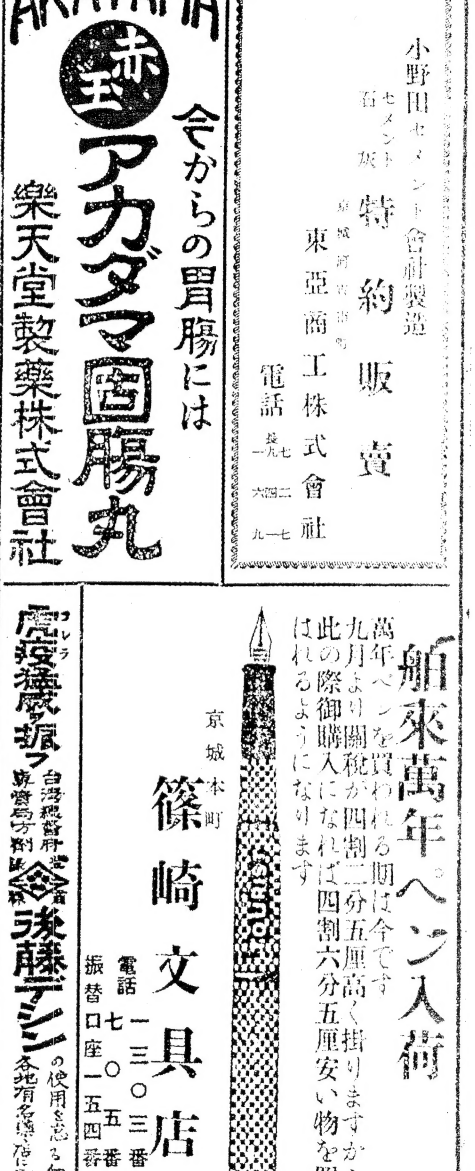 小野田セメント會社製造
セメント
石灰
特約販賣
東亞商工株式會社
電話
AKATAMA
赤玉
今からの胃膓には
アカダマ固膓丸
樂天堂製藥株式會社
舶來萬年ペン入荷
萬年ペンを買われる期は今です
九月より關稅が四割二分五厘高く掛りますから
此の際御購入になれば四割六分五厘安い物を
はれるようになります
京城本町
篠崎文具店
電話
一三〇三番
七〇五番
振替口座一五四番
コレラ
虎疫猛威ヲ振フ
台灣總督府
專賣局方劑
後藤デシン
の使用を
各地有名藥店に